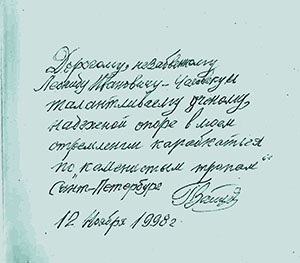 Дорогому, незабвенному
Леониду Ивановичу – человеку и
талантливому ученому,
надежной опоре в моем
стремлении карабкаться
по „каменистым тропам“
Санкт-Петербург
12 Ноября 1998 г.